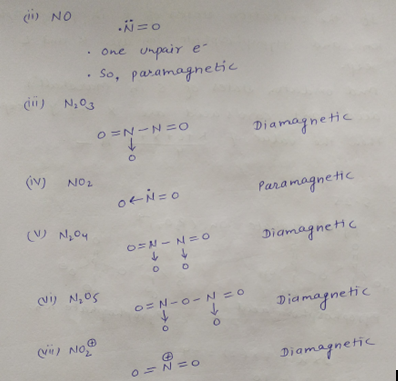 (ii) NO
·N̈=O
· one unpair e⁻
· So, paramagnetic
(iii) N₂O₃
O=N–N=O Diamagnetic
↓
O
(iv) NO₂
O←Ṅ=O Paramagnetic
(v) N₂O₄
O=N–N=O Diamagnetic
↓ ↓
O O
(vi) N₂O₅
O=N-O-N=O Diamagnetic
↓ ↓
O O
(vii) NO₂⊕
⊕
O=N=O Diamagnetic